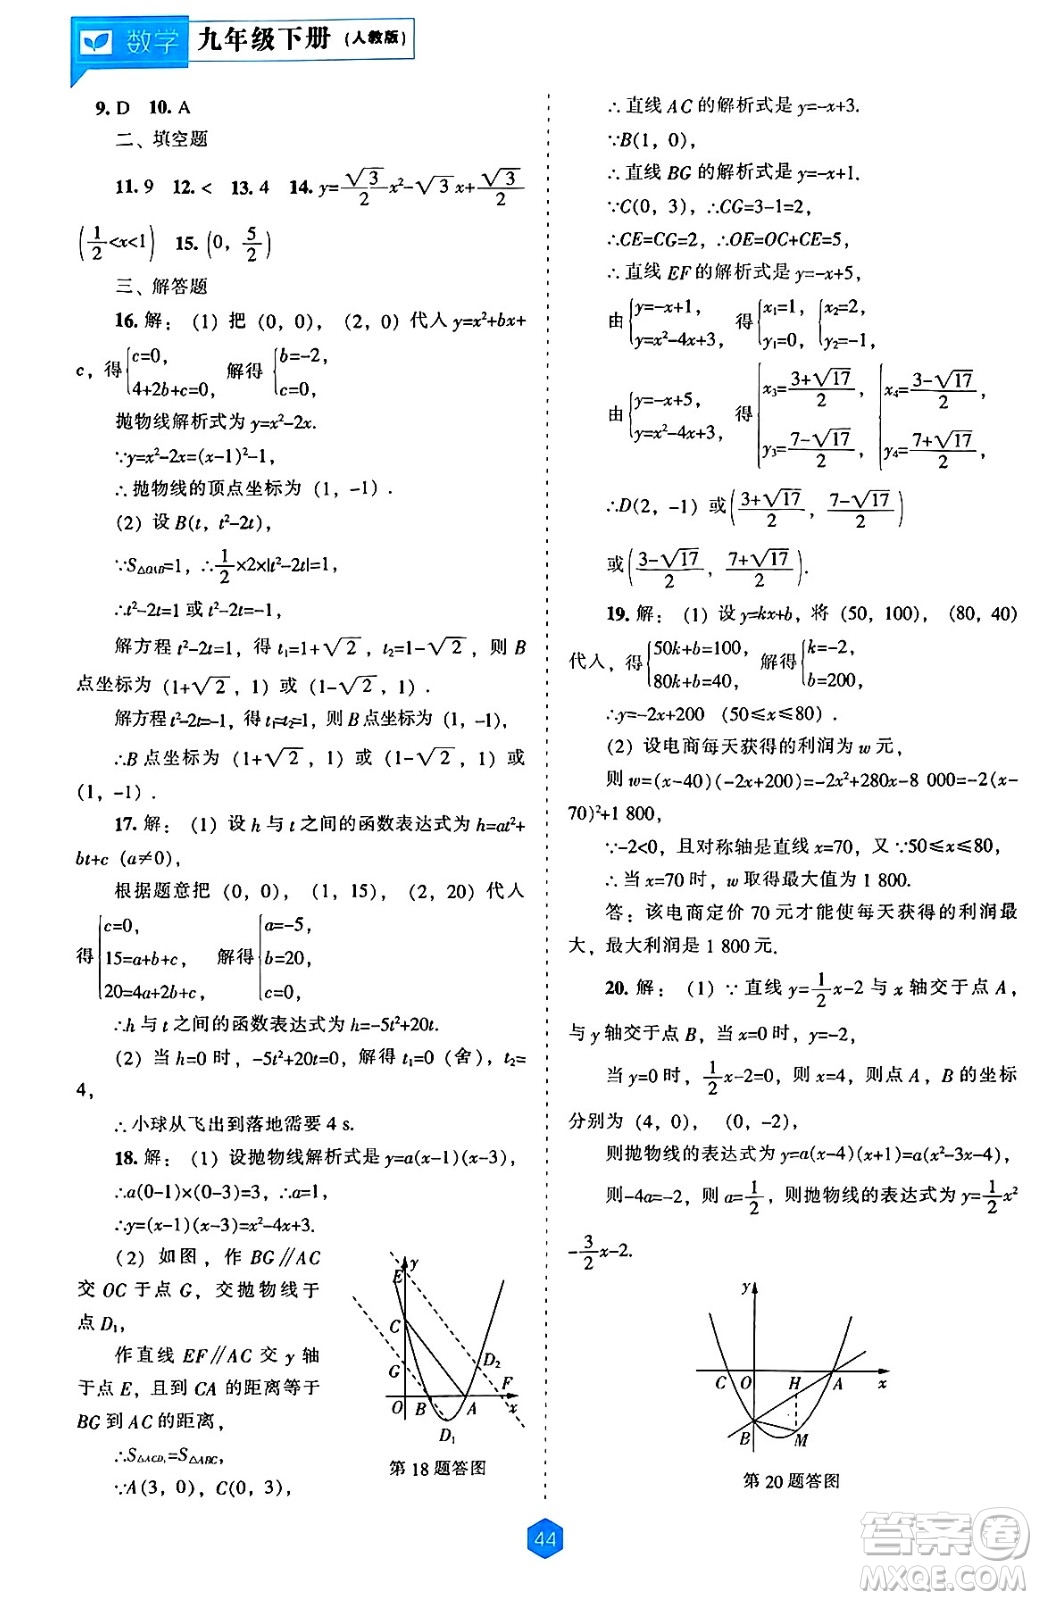 数学 九年级下册（人教版）
9. D 10. A
二、填空题
11. 9 12. < 13. 4 14. y=√3/2x²-√3x+√3/2
(1/2<x<1) 15. (0, 5/2)
三、解答题
16. 解：（1）把（0，0），（2，0）代人 y=x²+bx+
c，得{c=0, 4+2b+c=0, 解得{b=-2, c=0.
抛物线解析式为 y=x²-2x.
∵y=x²-2x=(x-1)²-1,
∴抛物线的顶点坐标为（1，-1）.
（2）设 B(t, t²-2t),
∵S△OAB=1, ∴1/2×2×|t²-2t|=1,
∴t²-2t=1 或 t²-2t=-1,
解方程 t²-2t=1，得 t₁=1+√2，t₂=1-√2，则 B
点坐标为（1+√2，1）或（1-√2，1）.
解方程 t²-2t=-1，得 t₁=t₂=1，则 B 点坐标为（1，-1），
∴B 点坐标为（1+√2，1）或（1-√2，1）或
（1，-1）.
17. 解：（1）设 h 与 t 之间的函数表达式为 h=at²+
bt+c（a≠0），
根据题意把（0，0），（1，15），（2，20）代人
得{c=0, 15=a+b+c, 20=4a+2b+c, 解得{a=-5, b=20, c=0,
∴h 与 t 之间的函数表达式为 h=-5t²+20t.
（2）当 h=0 时，-5t²+20t=0，解得 t₁=0（舍），t₂=
4，
∴小球从飞出到落地需要 4 s.
18. 解：（1）设抛物线解析式是 y=a(x-1)(x-3),
∴a(0-1)×(0-3)=3, ∴a=1,
∴y=(x-1)(x-3)=x²-4x+3.
（2）如图，作 BG∥AC
交 OC 于点 G，交抛物线于
点 D₁，
作直线 EF∥AC 交 y 轴
于点 E，且到 CA 的距离等于
BG 到 AC 的距离，
∴S△ACD₁=S△ABC,
∵A(3, 0), C(0, 3),
E y C G D₂ F O B A x D₁
第 18 题答图
∴直线 AC 的解析式是 y=-x+3.
∵B(1, 0),
∴直线 BG 的解析式是 y=-x+1.
∵C(0, 3), ∴CG=3-1=2,
∴CE=CG=2, ∴OE=OC+CE=5,
∴直线 EF 的解析式是 y=-x+5,
由{y=-x+1, y=x²-4x+3, 得{x₁=1, y₁=0, {x₂=2, y₂=-1,
由{y=-x+5, y=x²-4x+3, 得{x₃=(3+√17)/2, y₃=(7-√17)/2, {x₄=(3-√17)/2, y₄=(7+√17)/2,
∴D(2, -1) 或((3+√17)/2, (7-√17)/2)
或((3-√17)/2, (7+√17)/2).
19. 解：（1）设 y=kx+b，将（50，100），（80，40）
代人，得{50k+b=100, 80k+b=40, 解得{k=-2, b=200,
∴y=-2x+200 （50≤x≤80）.
（2）设电商每天获得的利润为 w 元，
则 w=(x-40)(-2x+200)=-2x²+280x-8 000=-2(x-
70)²+1 800,
∵-2<0，且对称轴是直线 x=70，又∵50≤x≤80，
∴当 x=70 时，w 取得最大值为 1 800.
答：该电商定价 70 元才能使每天获得的利润最
大，最大利润是 1 800 元.
20. 解：（1）∵直线 y=1/2x-2 与 x 轴交于点 A，
与 y 轴交于点 B，当 x=0 时，y=-2，
当 y=0 时，1/2x-2=0，则 x=4，则点 A，B 的坐标
分别为（4，0），（0，-2），
则抛物线的表达式为 y=a(x-4)(x+1)=a(x²-3x-4),
则-4a=-2，则 a=1/2，则抛物线的表达式为 y=1/2x²
-3/2x-2.
y C O H A x B M
第 20 题答图
44
答案圈
MXQE.COM